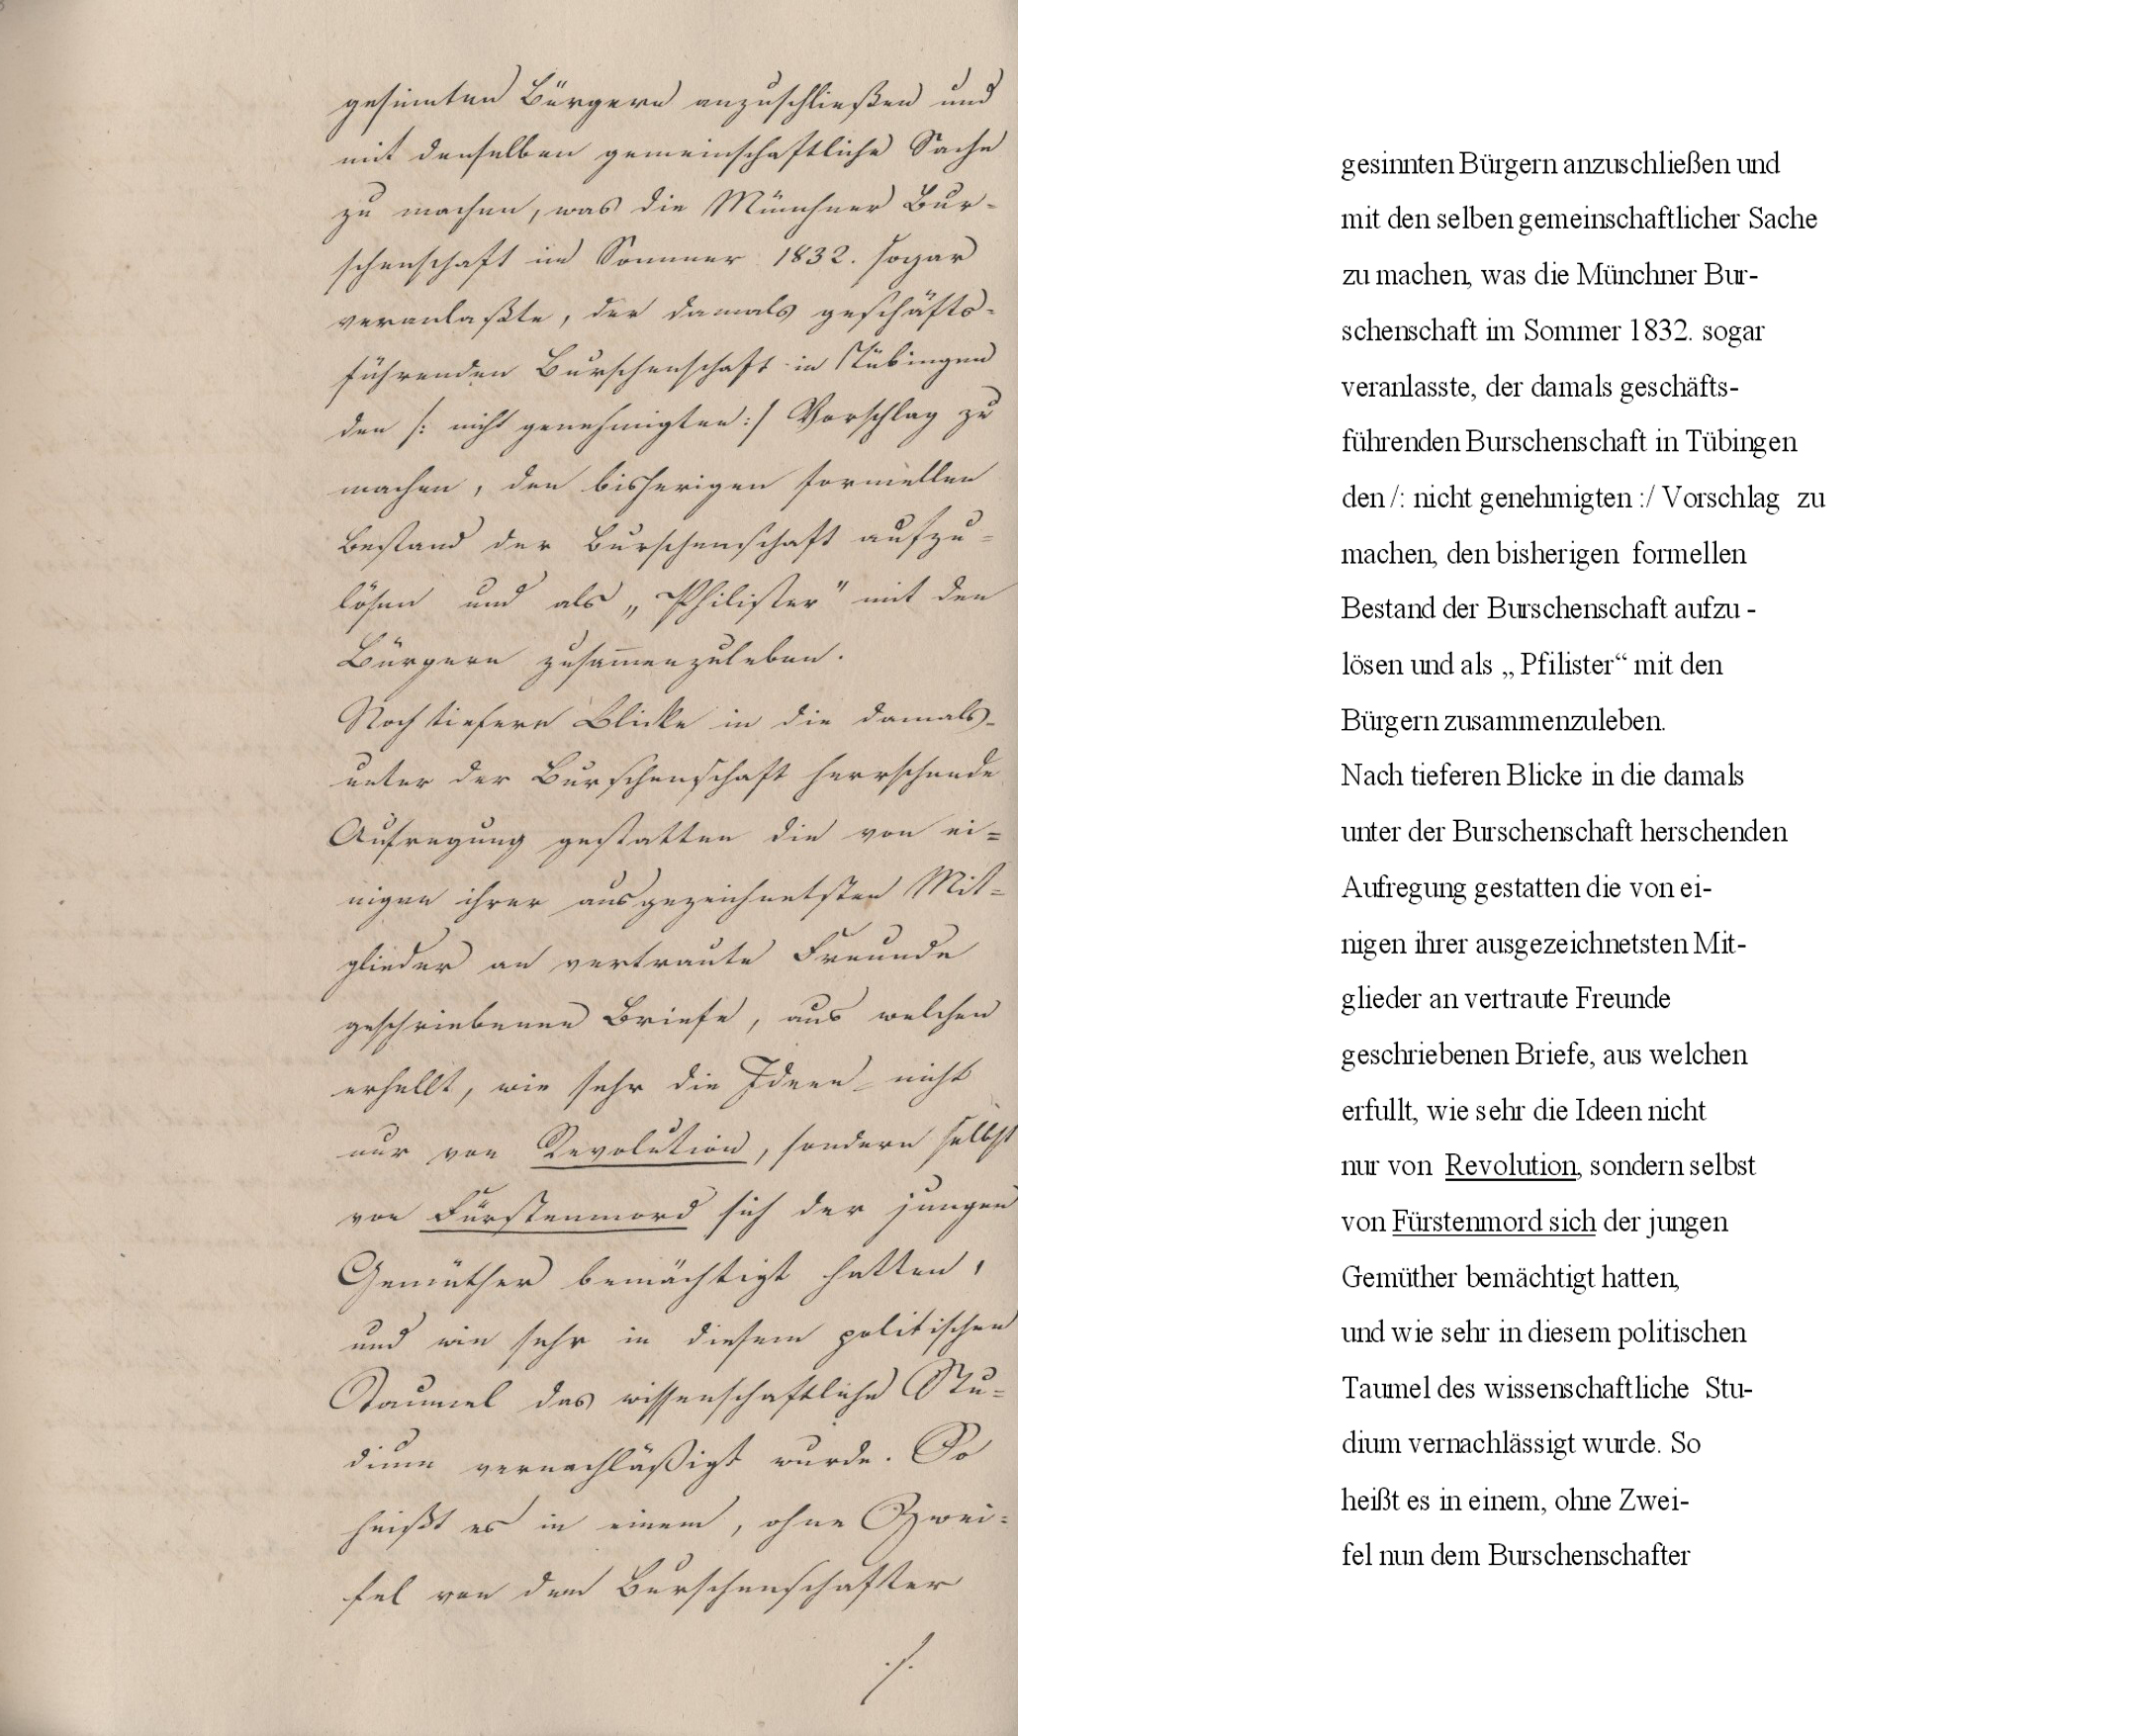 gesinnten Bürgern anzuschließen und
mit denselben gemeinschaftliche Sache
zu machen, was die Münchner Bur-
schenschaft im Sommer 1832. sogar
veranlaßte, der damals geschäfts-
führenden Burschenschaft in Tübingen
den /: nicht genehmigten :/ Vorschlag zu
machen, den bisherigen formellen
Bestand der Burschenschaft aufzu-
lösen und als „Philister" mit den
Bürgern zusammenzuleben.
Noch tiefere Blicke in die damals
unter der Burschenschaft herrschende
Aufregung gestatten die von ei=
nigen ihrer ausgezeichnetsten Mit=
glieder an vertraute Freunde
geschriebenen Briefe, aus welchen
erhellt, wie sehr die Ideen nicht
nur von Revolution, sondern selbst
von Fürstenmord sich der jungen
Gemüther bemächtigt hatten,
und wie sehr in diesem politischen
Taumel das wissenschaftliche Stu=
dium vernachläßigt wurde. So
heißt es in einem, ohne Zwei=
fel von dem Burschenschafter
./.
gesinnten Bürgern anzuschließen und
mit den selben gemeinschaftlicher Sache
zu machen, was die Münchner Bur-
schenschaft im Sommer 1832. sogar
veranlasste, der damals geschäfts-
führenden Burschenschaft in Tübingen
den /: nicht genehmigten :/ Vorschlag zu
machen, den bisherigen formellen
Bestand der Burschenschaft aufzu -
lösen und als „ Pfilister“ mit den
Bürgern zusammenzuleben.
Nach tieferen Blicke in die damals
unter der Burschenschaft herschenden
Aufregung gestatten die von ei-
nigen ihrer ausgezeichnetsten Mit-
glieder an vertraute Freunde
geschriebenen Briefe, aus welchen
erfullt, wie sehr die Ideen nicht
nur von Revolution, sondern selbst
von Fürstenmord sich der jungen
Gemüther bemächtigt hatten,
und wie sehr in diesem politischen
Taumel des wissenschaftliche Stu-
dium vernachlässigt wurde. So
heißt es in einem, ohne Zwei-
fel nun dem Burschenschafter